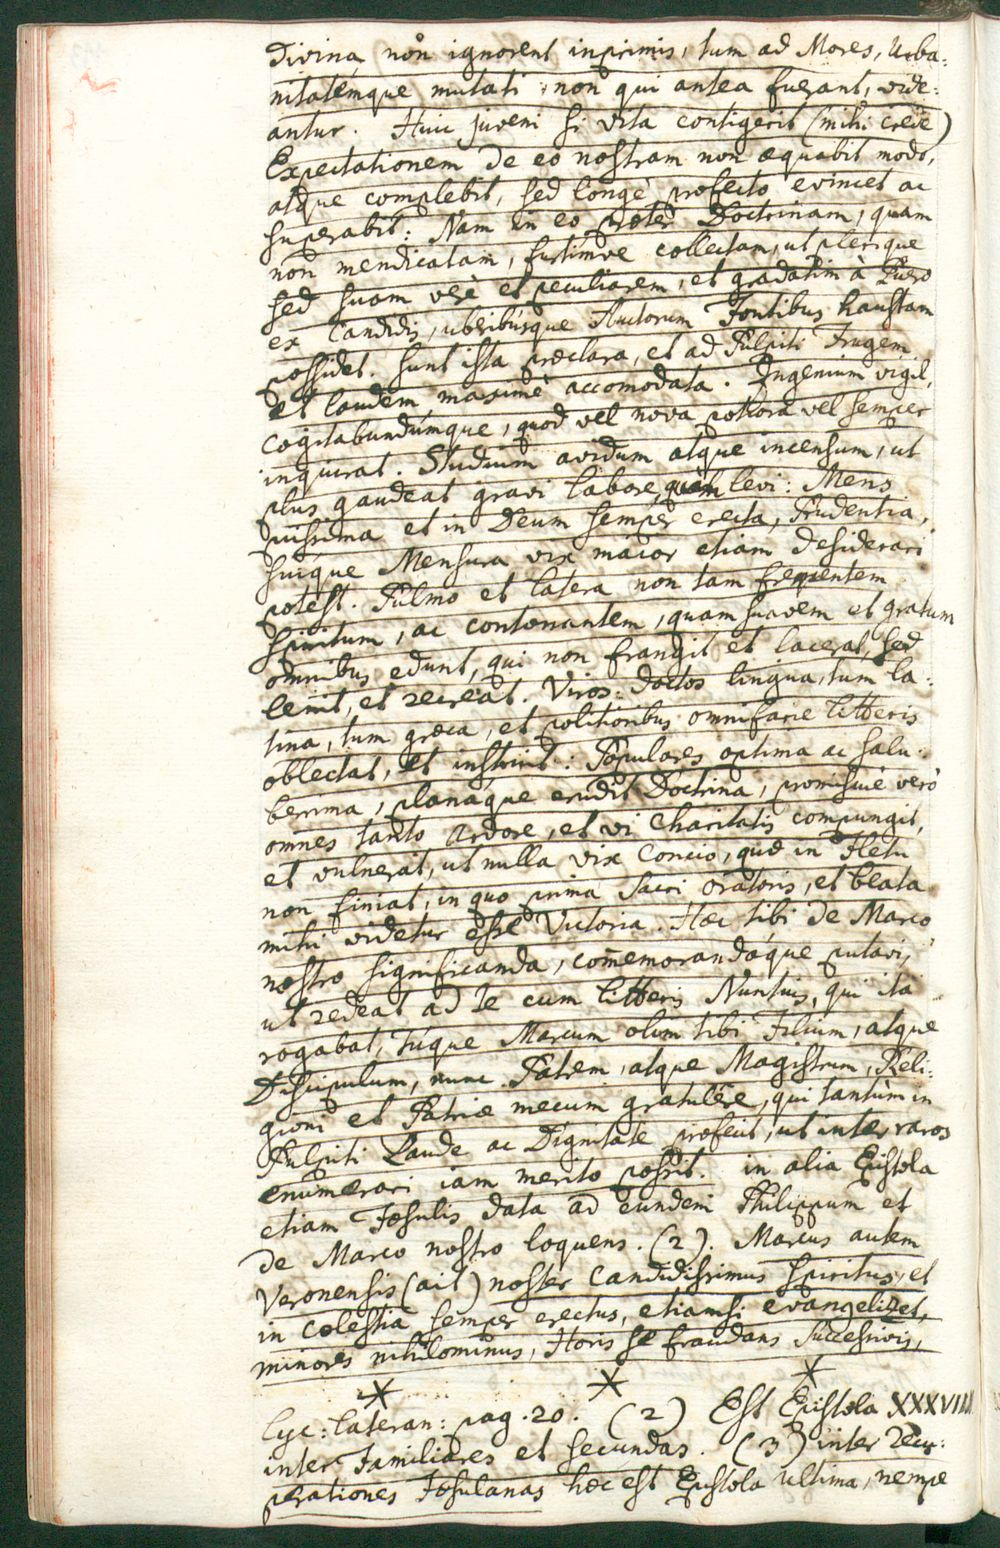 Divina non ignorent inprimis, tum ad Mores, Urba:
nitatemque mutati, non qui antea fuerant, vide:
antur. Huic juveni si vita contigerit (mihi crede)
Expectationem de eo nostram non æquabit modo,
atque complebit, sed longè profecto evincet ac
superabit: Nam in eo præter Doctrinam, quam
non mendicatam, furtimve collectam, ut plerique
sed suam verè et peculiarem, et gradatim à Puero
ex Candidis, uberibúsque Auctorum Fontibus haustam
possidet. Sunt ista præclara, et ad Pulpiti Frugem
et laudem maximè accomodata. Ingenium vigil,
cogitabundúmque, quod vel nova vel semper
inquirat. Studium avidum atque incensum, ut
plus gaudeat gravi labore, quàm levi: Mens
piissima et in Deum semper erecta, Prudentia,
suique Mensura vix maior etiam desiderari
potest. Pulmo et latera non tam frequentem
spiritum, ac contonantem, quam suavem et gratum
omnibus edunt, qui non frangit et lacerat, sed
lenit, et recreat. Viros doctos lingua, tum la:
tina, tum græca, et politioribus omnifarie litteris
oblectat, et instruit: Populares optima ac salu:
berrima, planaque erudit Doctrina, promiscuè verò
omnes tanto Ardore, et vi Charitatis compungit,
et vulnerat, ut nulla vix Concio, quæ in Fletu
non finiat, in quo prima Sacri Oratoris, et beata
mihi videtur esse Victoria. Hæc tibi de Marco
nostro significanda, comemorandáque putavi,
ut redeat ad Te cum litteris Nuntius, qui ita
rogabat, túque Marcum olim tibi Filium, atque
Discipulum, nunc Patrem, atque Magistrum, Reli:
gioni et Patriæ mecum gratulére, qui tantùm in
Pulpiti Laude ac Dignitate profecit, ut inter raros
enumerari iam merito possit. in alia Epistola
etiam Fæsulis data ad eundem Philippum et
de Marco nostro loquens. (2). Marcus autem
Veronensis (ait) noster Candidissimus Spiritus, et
in cœlestia semper erectus, etiamsi evangelizet,
minores nihilominus, Horis se fraudans successivis,
* * *
Lyc: lateran: pag. 20. (2) Est Epistola XXXVIII
inter Familiares et secundas. (3) inter Recu:
perationes Fæsulanas hæc est Epistola ultima, nempe